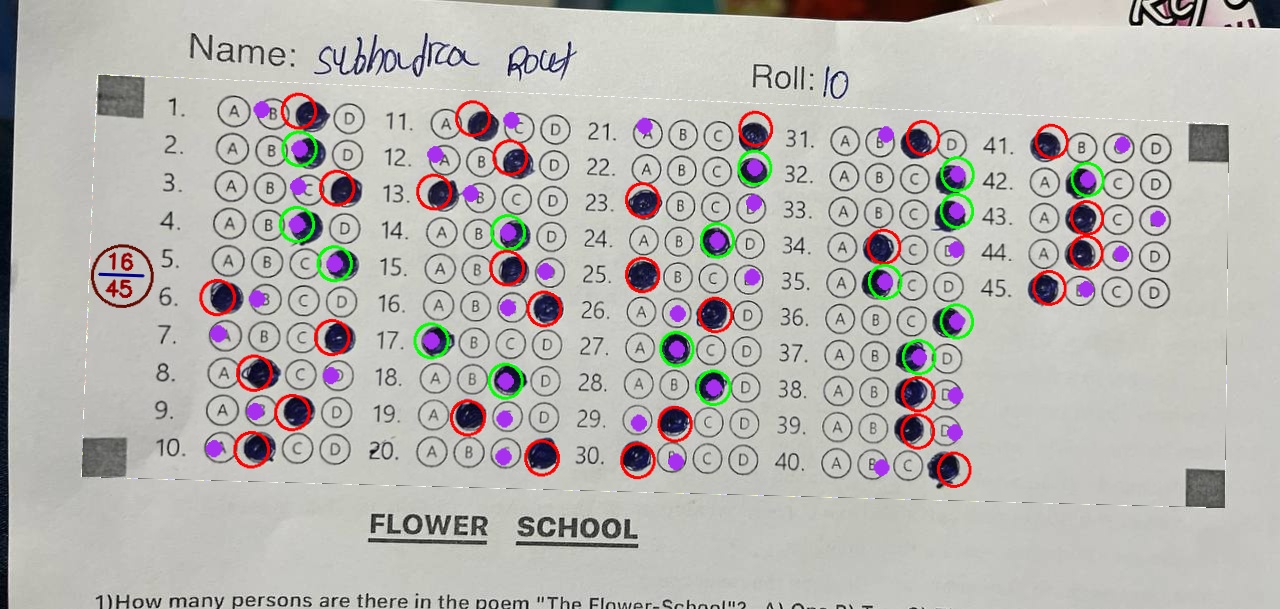 Name: Subhadra Rout
Roll: 10
1. A B D
2. A B D
3. A B C
4. A B D
5. A B C
6. B C D
7. A B C
8. A C D
9. A B D
10. A C D
11. A C D
12. A B D
13. B C D
14. A B D
15. A B D
16. A B C
17. B C D
18. A B D
19. A C D
20. A B C
21. A B C
22. A B C
23. B C D
24. A B D
25. B C D
26. A B D
27. A C D
28. A B D
29. A C D
30. B C D
31. A B D
32. A B C
33. A B C
34. A C D
35. A C D
36. A B C
37. A B D
38. A B D
39. A B D
40. A B C
41. B C D
42. A C D
43. A C D
44. A C D
45. B C D
16
45
FLOWER SCHOOL
1)How many persons are there in the poem "The Flower-School"? A) One B)